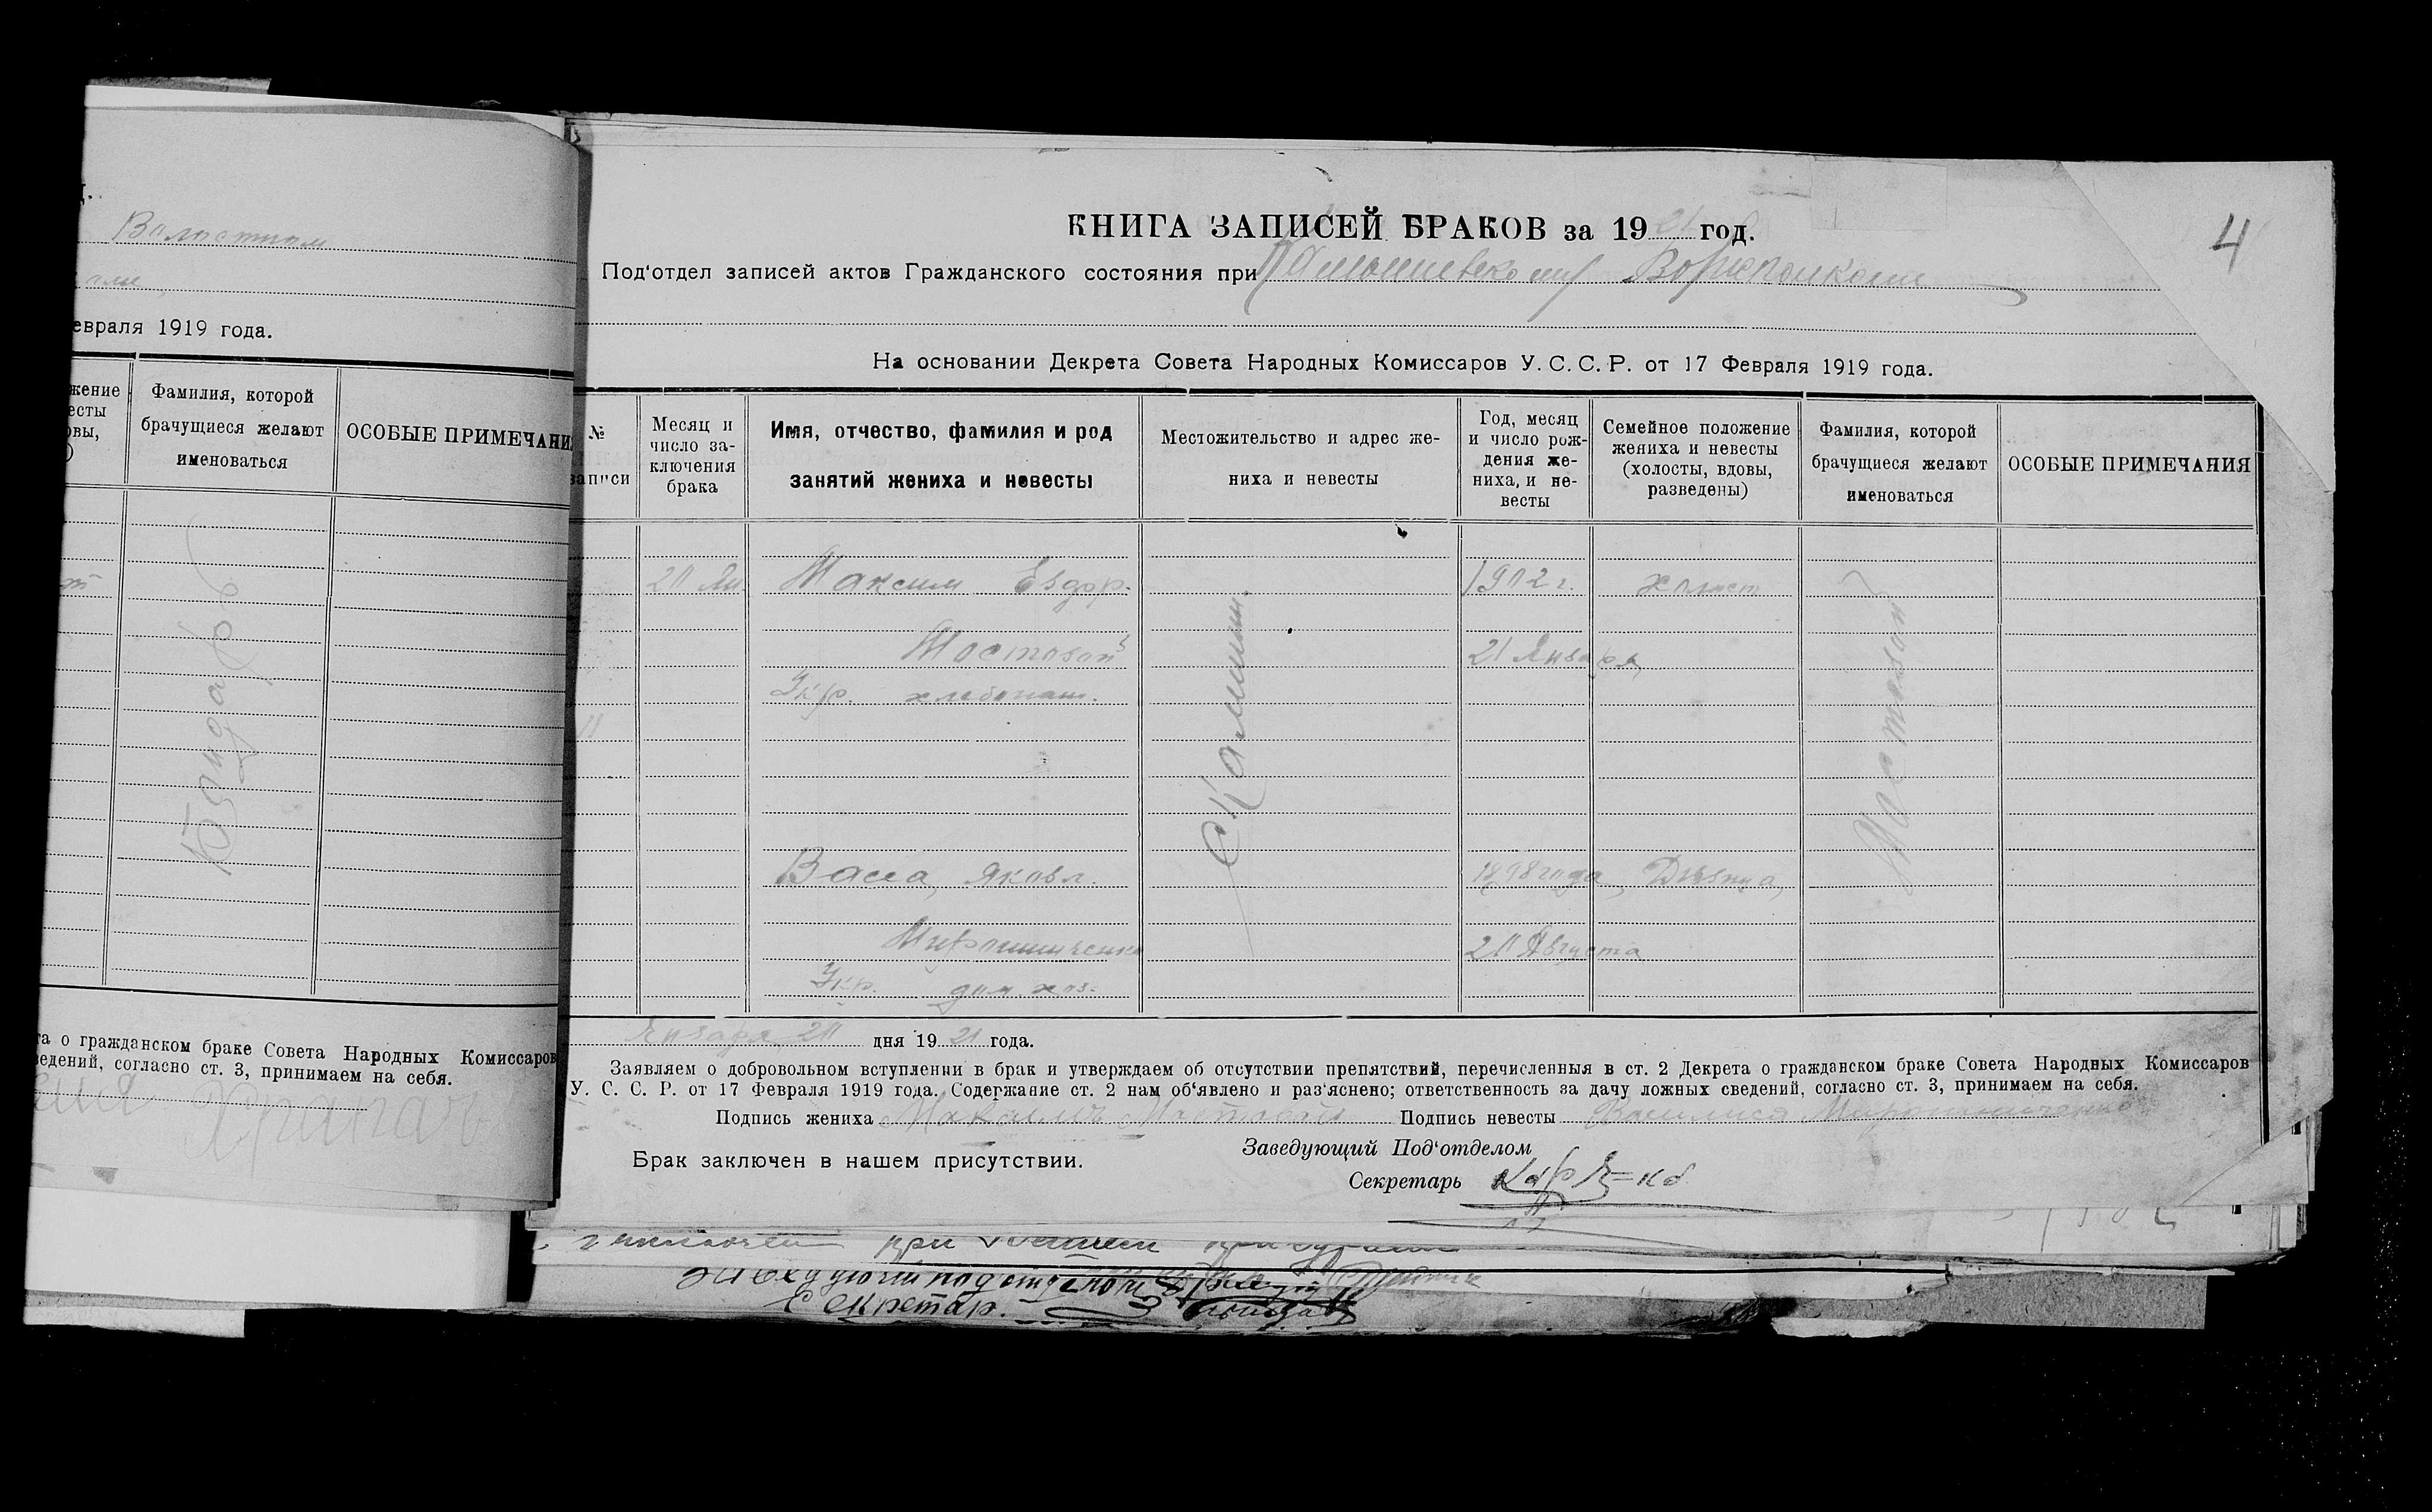 Волостном
евраля 1919 года.
жение
есты
овы,
)
Фамилия, которой
брачущиеся желают
именоваться
ОСОБЫЕ ПРИМЕЧАНИ
та о гражданском браке Совета Народных Комиссаров
ведений, согласно ст. 3, принимаем на себя.
4
КНИГА ЗАПИСЕЙ БРАКОВ за 1921 год.
Под'отдел записей актов Гражданского состояния при
На основании Декрета Совета Народных Комиссаров У. С. С. Р. от 17 Февраля 1919 года.
№
записи
Месяц и
число за-
ключения
брака
Имя, отчество, фамилия и род
занятий жениха и невесты
Местожительство и адрес же-
ниха и невесты
Год, месяц
и число рож-
дения же-
ниха, и не-
весты
Семейное положение
жениха и невесты
(холосты, вдовы,
разведены)
Фамилия, которой
брачущиеся желают
именоваться
ОСОБЫЕ ПРИМЕЧАНИЯ
20 Ян. Максим Евдор. 1902 г. холост
Мостовой 21 Января
Укр. хлебопаш.
с Камыш.
Мостовой
Васса, Яковл. 1898 года, Девица,
Мирошниченко 20 Августа
Укр. дом. хоз.
Января 20 дня 1921 года.
Заявляем о добровольном вступлении в брак и утверждаем об отсутствии препятствий, перечисленныя в ст. 2 Декрета о гражданском браке Совета Народных Комиссаров
У. С. С. Р. от 17 Февраля 1919 года. Содержание ст. 2 нам об'явлено и раз'яснено; ответственность за дачу ложных сведений, согласно ст. 3, принимаем на себя.
Подпись жениха Мостовой Подпись невесты Василиса Мирошниченко
Заведующий Под'отделом
Брак заключен в нашем присутствии.
Секретарь
Секретар.